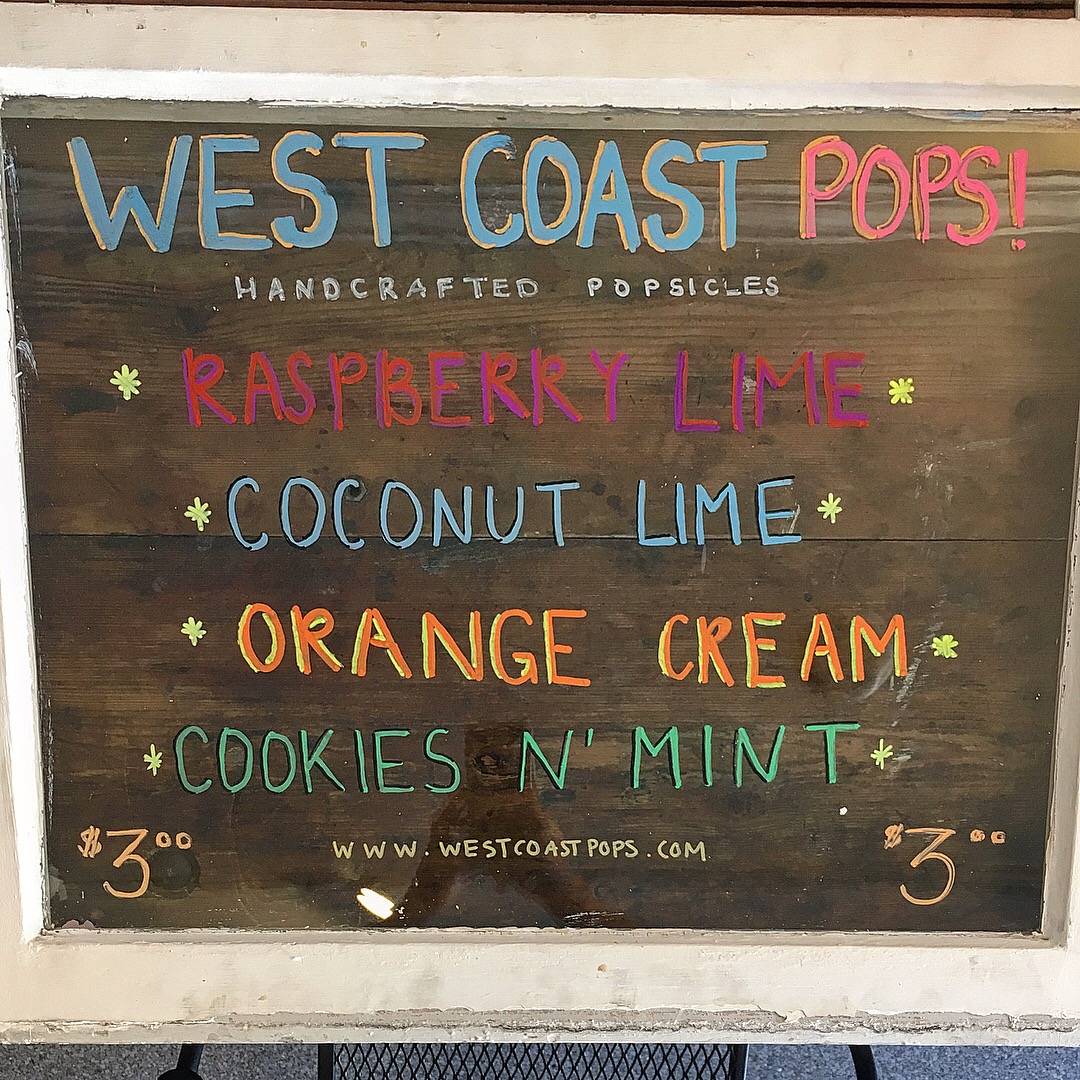 WEST COAST POPS!
HANDCRAFTED POPSICLES
* RASPBERRY LIME *
* COCONUT LIME *
* ORANGE CREAM *
* COOKIES N' MINT *
$3.00 WWW.WESTCOASTPOPS.COM $3.00